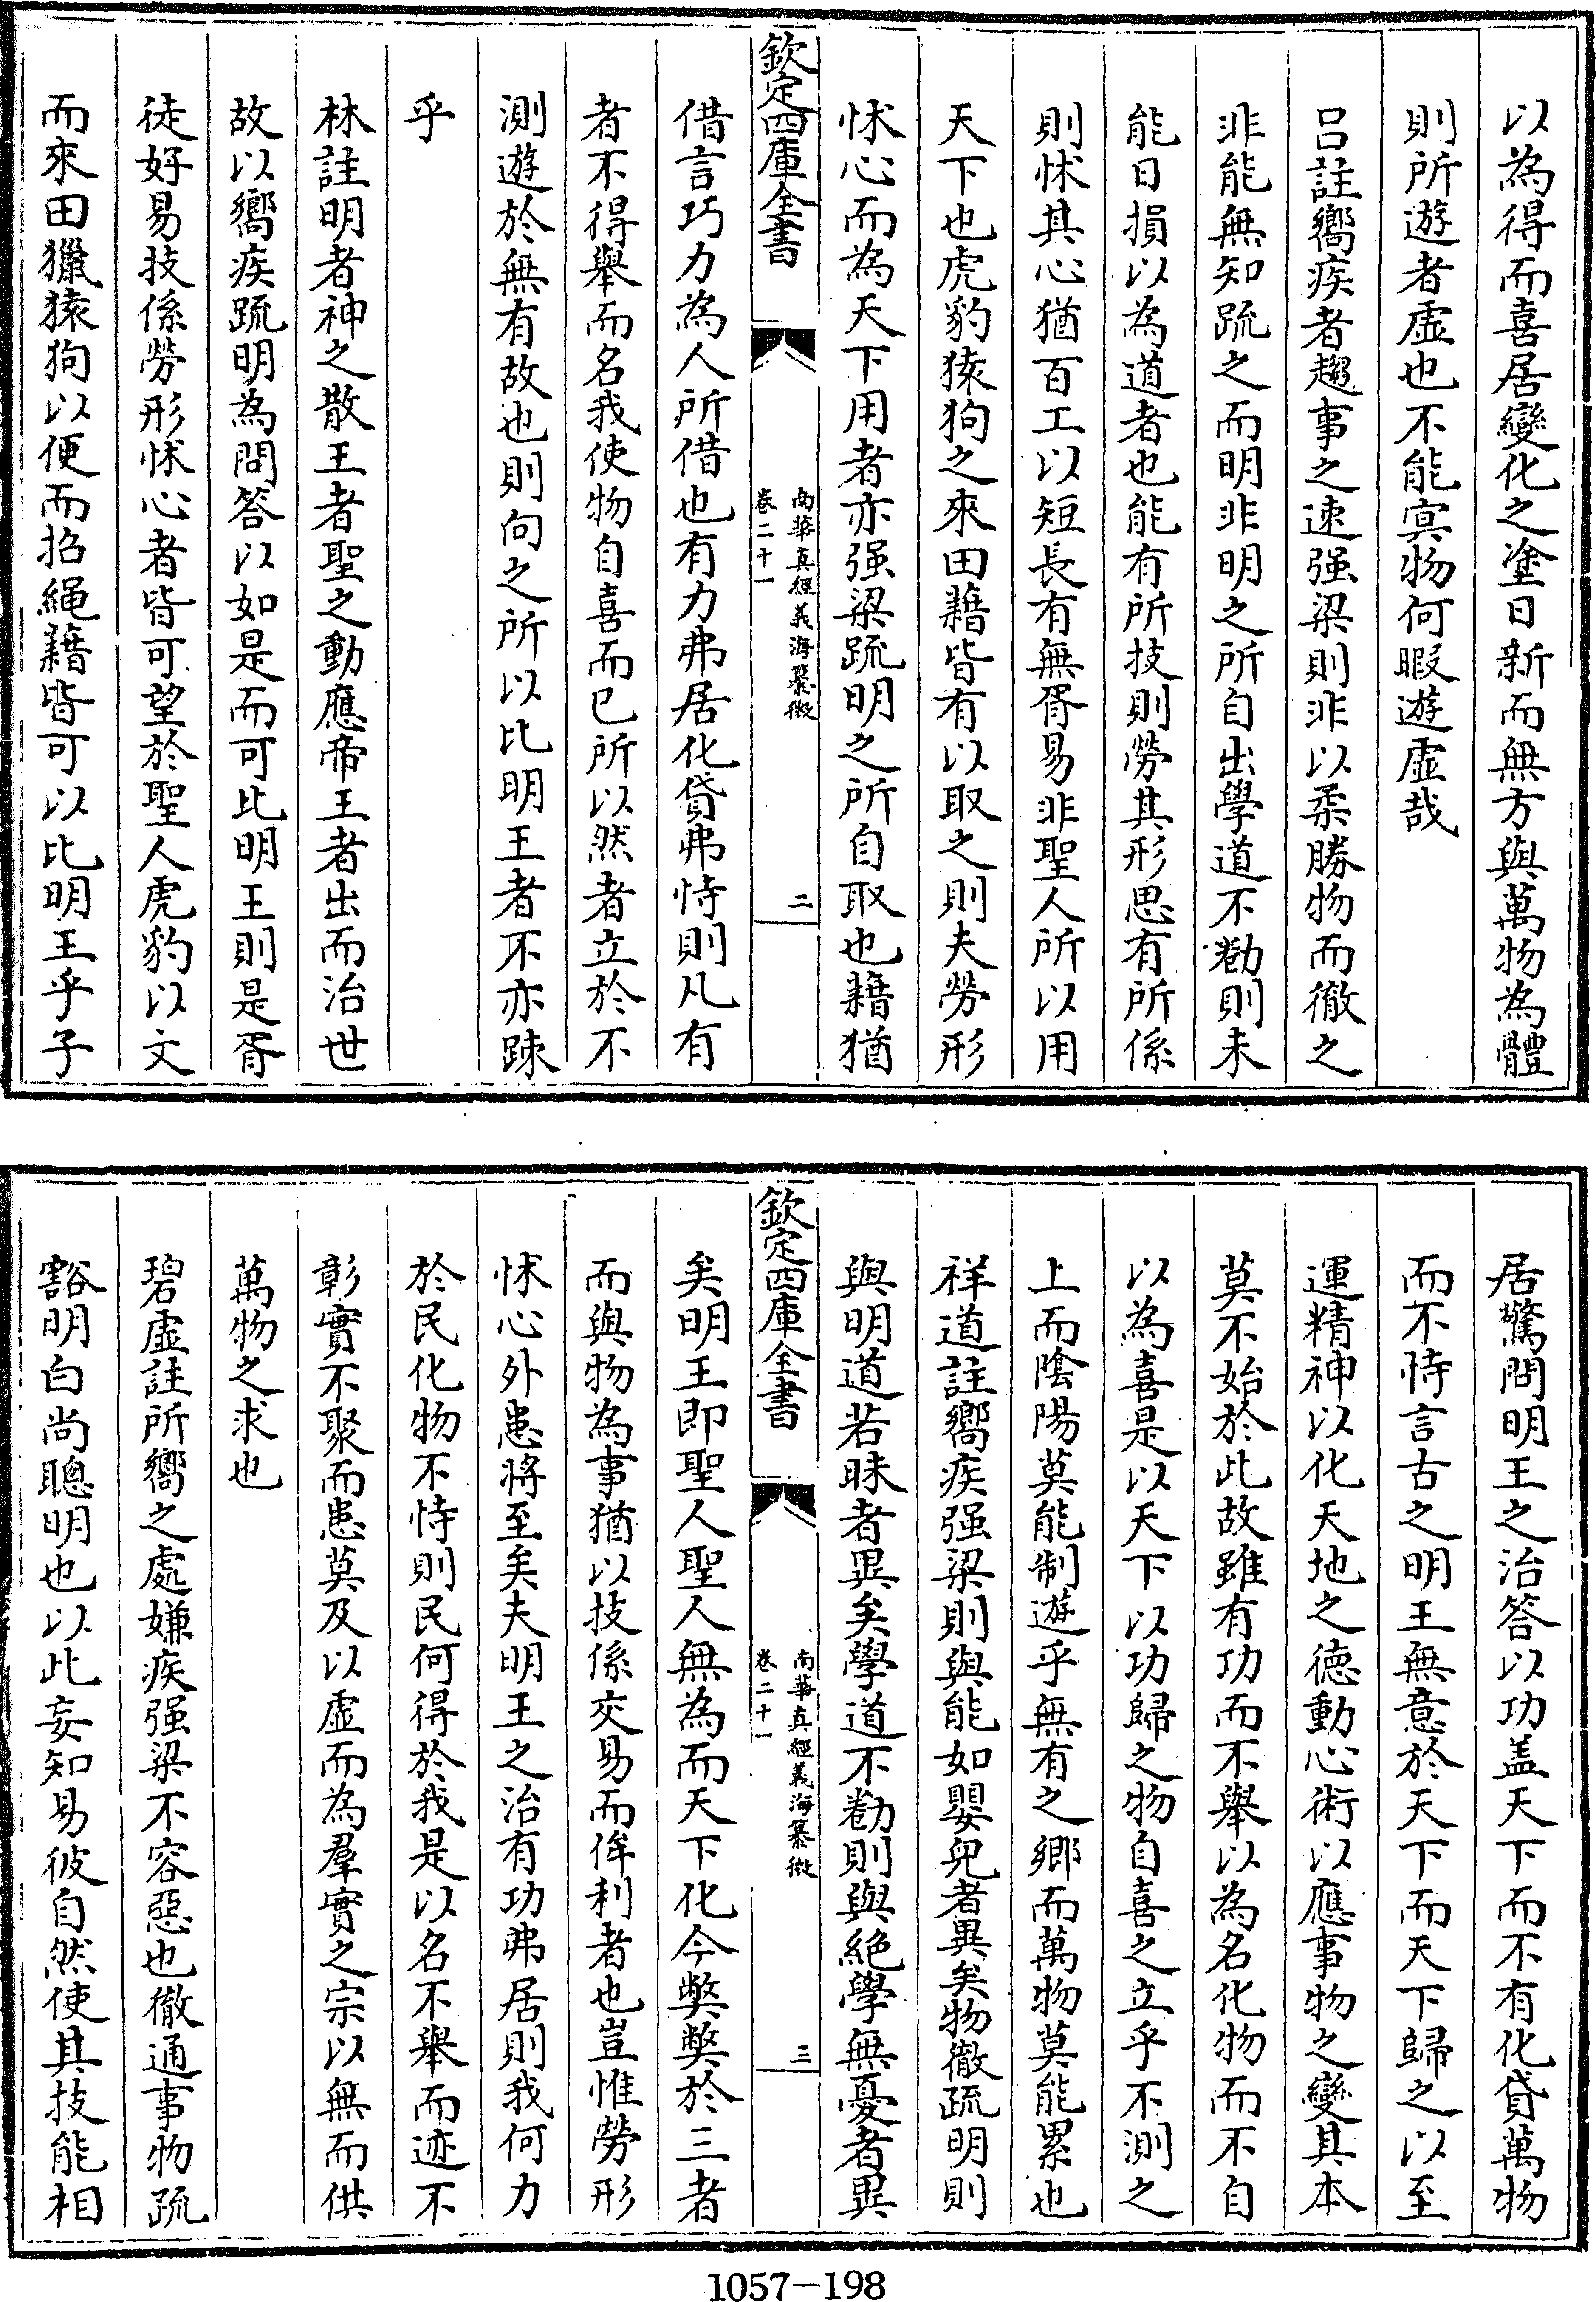 以為得而喜居變化之塗日新而無方與萬物為體
則所遊者虛也不能㝠物何暇遊虛哉
吕註嚮疾者趨事之速强梁則非以柔勝物而徹之
非能無知疏之而明非明之所自出學道不勌則未
能日損以為道者也能有所技則勞其形思有所係
則怵其心猶百工以短長有無胥易非聖人所以用
天下也虎豹猿狗之來田藉皆有以取之則夫勞形
怵心而為天下用者亦强梁疏明之所自取也藉猶
欽定四庫全書
南華真經義海纂微
卷二十一
二
借言巧力為人所借也有力弗居化貸弗恃則凡有
者不得舉而名我使物自喜而已所以然者立於不
測遊於無有故也則向之所以比明王者不亦踈
乎
林註明者神之散王者聖之動應帝王者出而治世
故以嚮疾疏明為問答以如是而可比明王則是胥
徒好易技係勞形怵心者皆可望於聖人虎豹以文
而來田獵猿狗以便而招繩藉皆可以比明王乎子
居驚問明王之治答以功盖天下而不有化貸萬物
而不恃言古之明王無意於天下而天下歸之以至
運精神以化天地之德動心術以應事物之變其本
莫不始於此故雖有功而不舉以為名化物而不自
以為喜是以天下以功歸之物自喜之立乎不測之
上而陰陽莫能制遊乎無有之鄉而萬物莫能累也
祥道註嚮疾强梁則與能如嬰兒者異矣物徹疏明則
與明道若昧者異矣學道不勌則與絶學無憂者異
欽定四庫全書
南華真經義海纂微
卷二十一
三
矣明王即聖人聖人無為而天下化今獘獘於三者
而與物為事猶以技係交易而侔利者也豈惟勞形
怵心外患將至矣夫明王之治有功弗居則我何力
於民化物不恃則民何得於我是以名不舉而迹不
彰實不聚而患莫及以虛而為羣實之宗以無而供
萬物之求也
碧虛註所嚮之處嫌疾强梁不容惡也徹通事物疏
豁明白尚聰明也以此妄知易彼自然使其技能相
1057-198